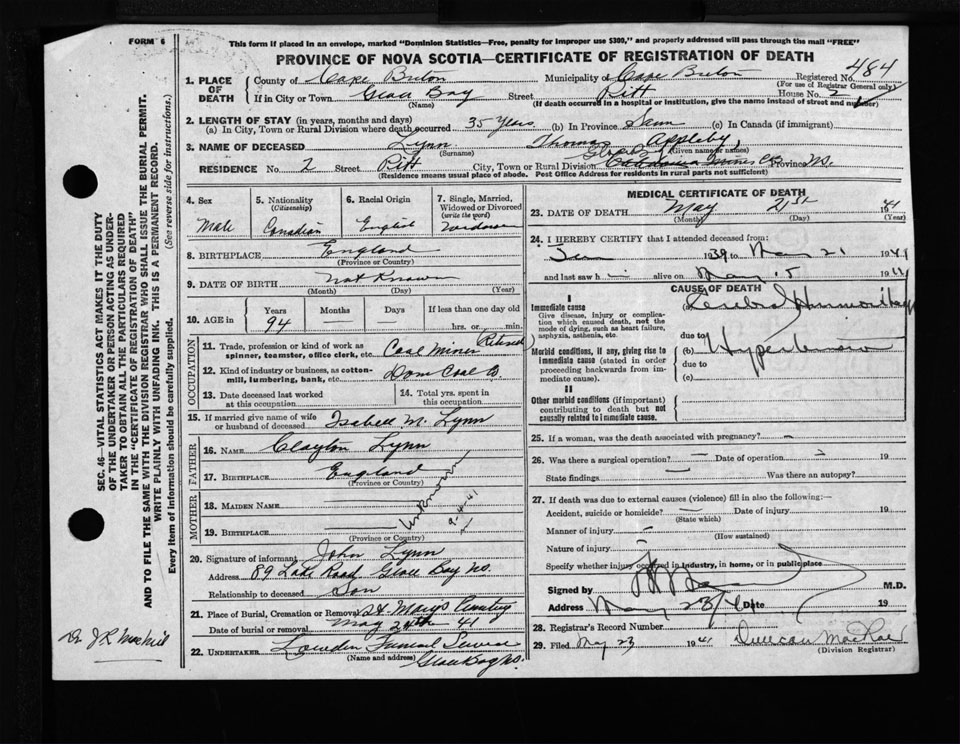 FORM 6
This form if placed in an envelope, marked "Dominion Statistics—Free, penalty for improper use $300," and properly addressed will pass through the mail "FREE"
PROVINCE OF NOVA SCOTIA—CERTIFICATE OF REGISTRATION OF DEATH
1. PLACE OF DEATH
County of Cape Breton Municipality of Cape Breton Registered No. 484
(For use of Registrar General only)
If in City or Town Glace Bay Street Pitt House No. 2
(Name) (If death occurred in a hospital or institution, give the name instead of street and number)
2. LENGTH OF STAY (in years, months and days)
(a) In City, Town or Rural Division where death occurred 35 Years (b) In Province Same (c) In Canada (if immigrant)
3. NAME OF DECEASED Lynn Thomas Appleby
(Surname) (Given name or names)
RESIDENCE No. 2 Street Pitt City, Town or Rural Division Glace Bay Caledonia Mines CB Province NS.
(Residence means usual place of abode. Post Office Address for residents in rural parts not sufficient)
4. Sex
Male
5. Nationality
(Citizenship)
Canadian
6. Racial Origin
English
7. Single, Married, Widowed or Divorced
(write the word)
Widower
8. BIRTHPLACE England
(Province or Country)
9. DATE OF BIRTH Not Known
(Month) (Day) (Year)
10. AGE in
Years Months Days If less than one day old
94 — hrs. or min.
OCCUPATION
11. Trade, profession or kind of work as spinner, teamster, office clerk, etc. Coal Miner Retired
12. Kind of industry or business, as cotton-mill, lumbering, bank, etc. Dom Coal Co
13. Date deceased last worked at this occupation
14. Total yrs. spent in this occupation
15. If married give name of wife or husband of deceased Isabell M. Lynn
FATHER
16. NAME Clayton Lynn
17. BIRTHPLACE England
(Province or Country)
MOTHER
18. MAIDEN NAME
Unknown
19. BIRTHPLACE
(Province or Country)
20. Signature of informant John Lynn
Address 89 Lake Road Glace Bay NS.
Relationship to deceased Son
21. Place of Burial, Cremation or Removal St Mary's Cemetery
Date of burial or removal May 24th 41
22. UNDERTAKER Lowden Funeral Service
(Name and address) Glace Bay NS.
MEDICAL CERTIFICATE OF DEATH
23. DATE OF DEATH May 21st 41
(Month) (Day) (Year)
24. I HEREBY CERTIFY that I attended deceased from:
1939 to May 21 1941
and last saw h alive on May 15 19
CAUSE OF DEATH
I
Immediate cause
Give disease, injury or complication which caused death, not the mode of dying, such as heart failure, asphyxia, asthenia, etc.
Cerebral Hemmorrhage
due to
Morbid conditions, if any, giving rise to immediate cause (stated in order proceeding backwards from immediate cause).
(b) Hypertension
due to
(c)
II
Other morbid conditions (if important) contributing to death but not causally related to immediate cause.
25. If a woman, was the death associated with pregnancy? –
26. Was there a surgical operation? — Date of operation 19
State findings — Was there an autopsy?
27. If death was due to external causes (violence) fill in also the following:—
Accident, suicide or homicide? — Date of injury 19
(State which)
Manner of injury
(How sustained)
Nature of injury
Specify whether injury occurred in industry, in home, or in public place
Signed by M.D.
Address May 23/41 Date 19
28. Registrar's Record Number
29. Filed May 23 1941 Duncan MacRae
(Division Registrar)
SEC. 46—VITAL STATISTICS ACT MAKES IT THE DUTY
OF THE UNDERTAKER OR PERSON ACTING AS UNDERTAKER TO OBTAIN ALL THE PARTICULARS REQUIRED
IN THE "CERTIFICATE OF REGISTRATION OF DEATH"
AND TO FILE THE SAME WITH THE DIVISION REGISTRAR WHO SHALL ISSUE THE BURIAL PERMIT.
WRITE PLAINLY WITH UNFADING INK. THIS IS A PERMANENT RECORD.
Every item of information should be carefully supplied. (See reverse side for instructions.)